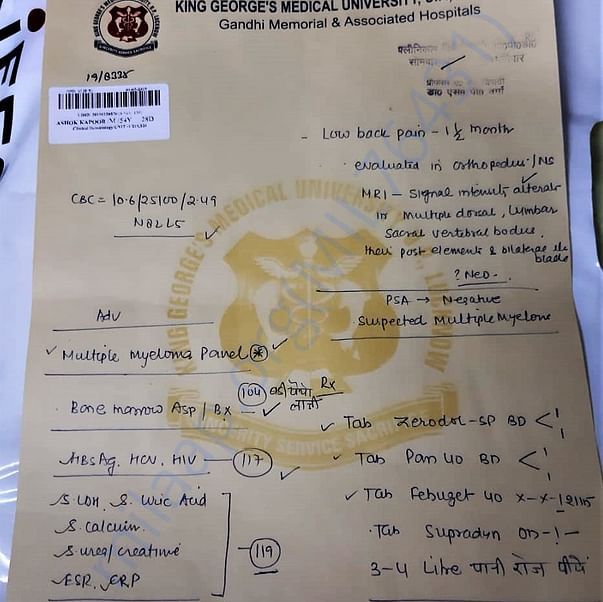 KING GEORGE'S MEDICAL UNIVERSITY, U.P.,
Gandhi Memorial & Associated Hospitals
19/8335
ASHOK KAPOOR M /54Y 28D
- Low back pain - 1 ½ month
evaluated in orthopedics/NS
CBC = 10.6/25100/2.49
N82L15
MRI - Signal intensity
in multiple dorsal, Lumbar
Sacral vertebral bodies,
their post elements & bilateral
blade
? Neo.
PSA → Negative
Suspected Multiple Myeloma
Adv
Multiple Myeloma Panel *
Bone marrow Asp / BX
104
Rx
Tab Zerodol-SP BD
HBsAg, HCV, HIV
117
Tab Pan 40 BD
S. LDH, S. Uric Acid
Tab Febuget 40 x-x-1
S. Calcium.
Tab Supradyn OD -1-
S. urea/creatinine
119
3-4 Litre पानी रोज पीयें
ESR, CRP